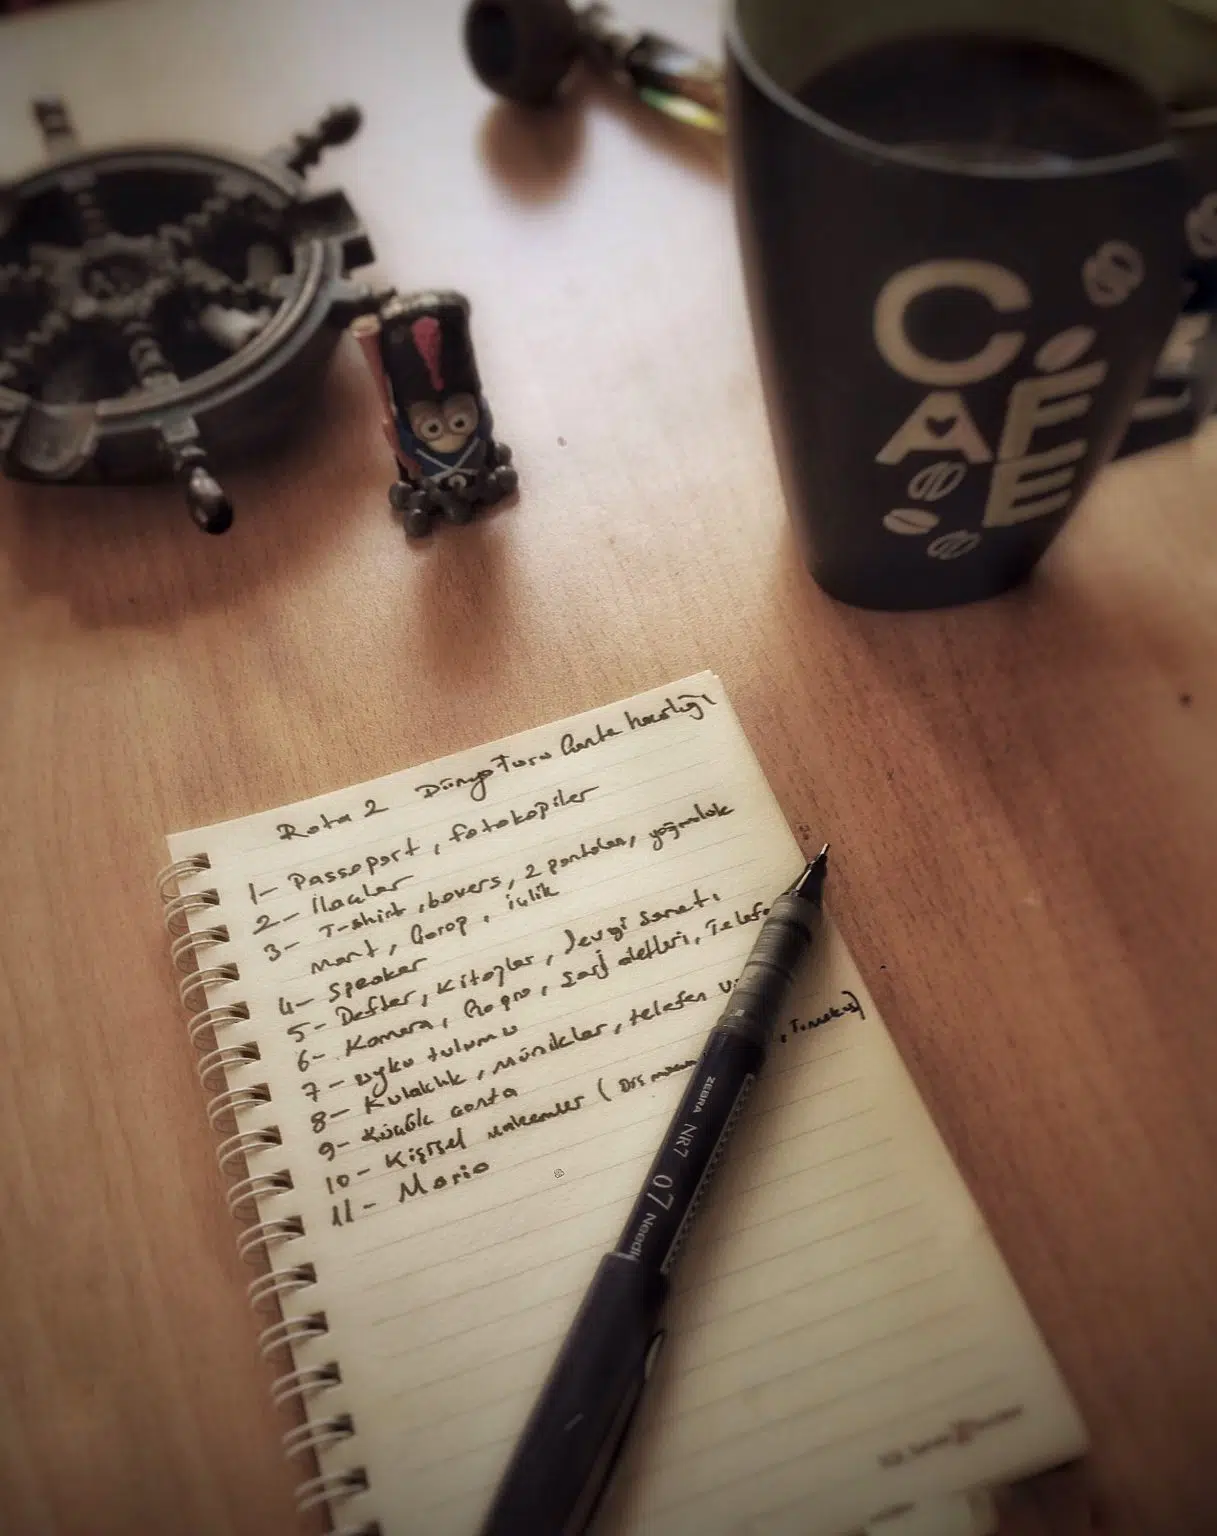 CAFE
Rota 2 Dünya Turu Çanta hazırlığı
1- Passaport, fotokopiler
2- İlaçlar
3- T-shirt, boxers, 2 pantolon, yağmurluk
mont, Çorap, içlik
4- Speaker
5- Defter, kitaplar, Sevgi Sanatı
6- Kamera, Gopro, Şarj aletleri, Telefo
7- uyku tulumu
8- Kulaklık, müzikler, telefon
9- Küçük çanta
10- Kişisel malzemeler (
11- Mario
ZEBRA NR7 07 Needl